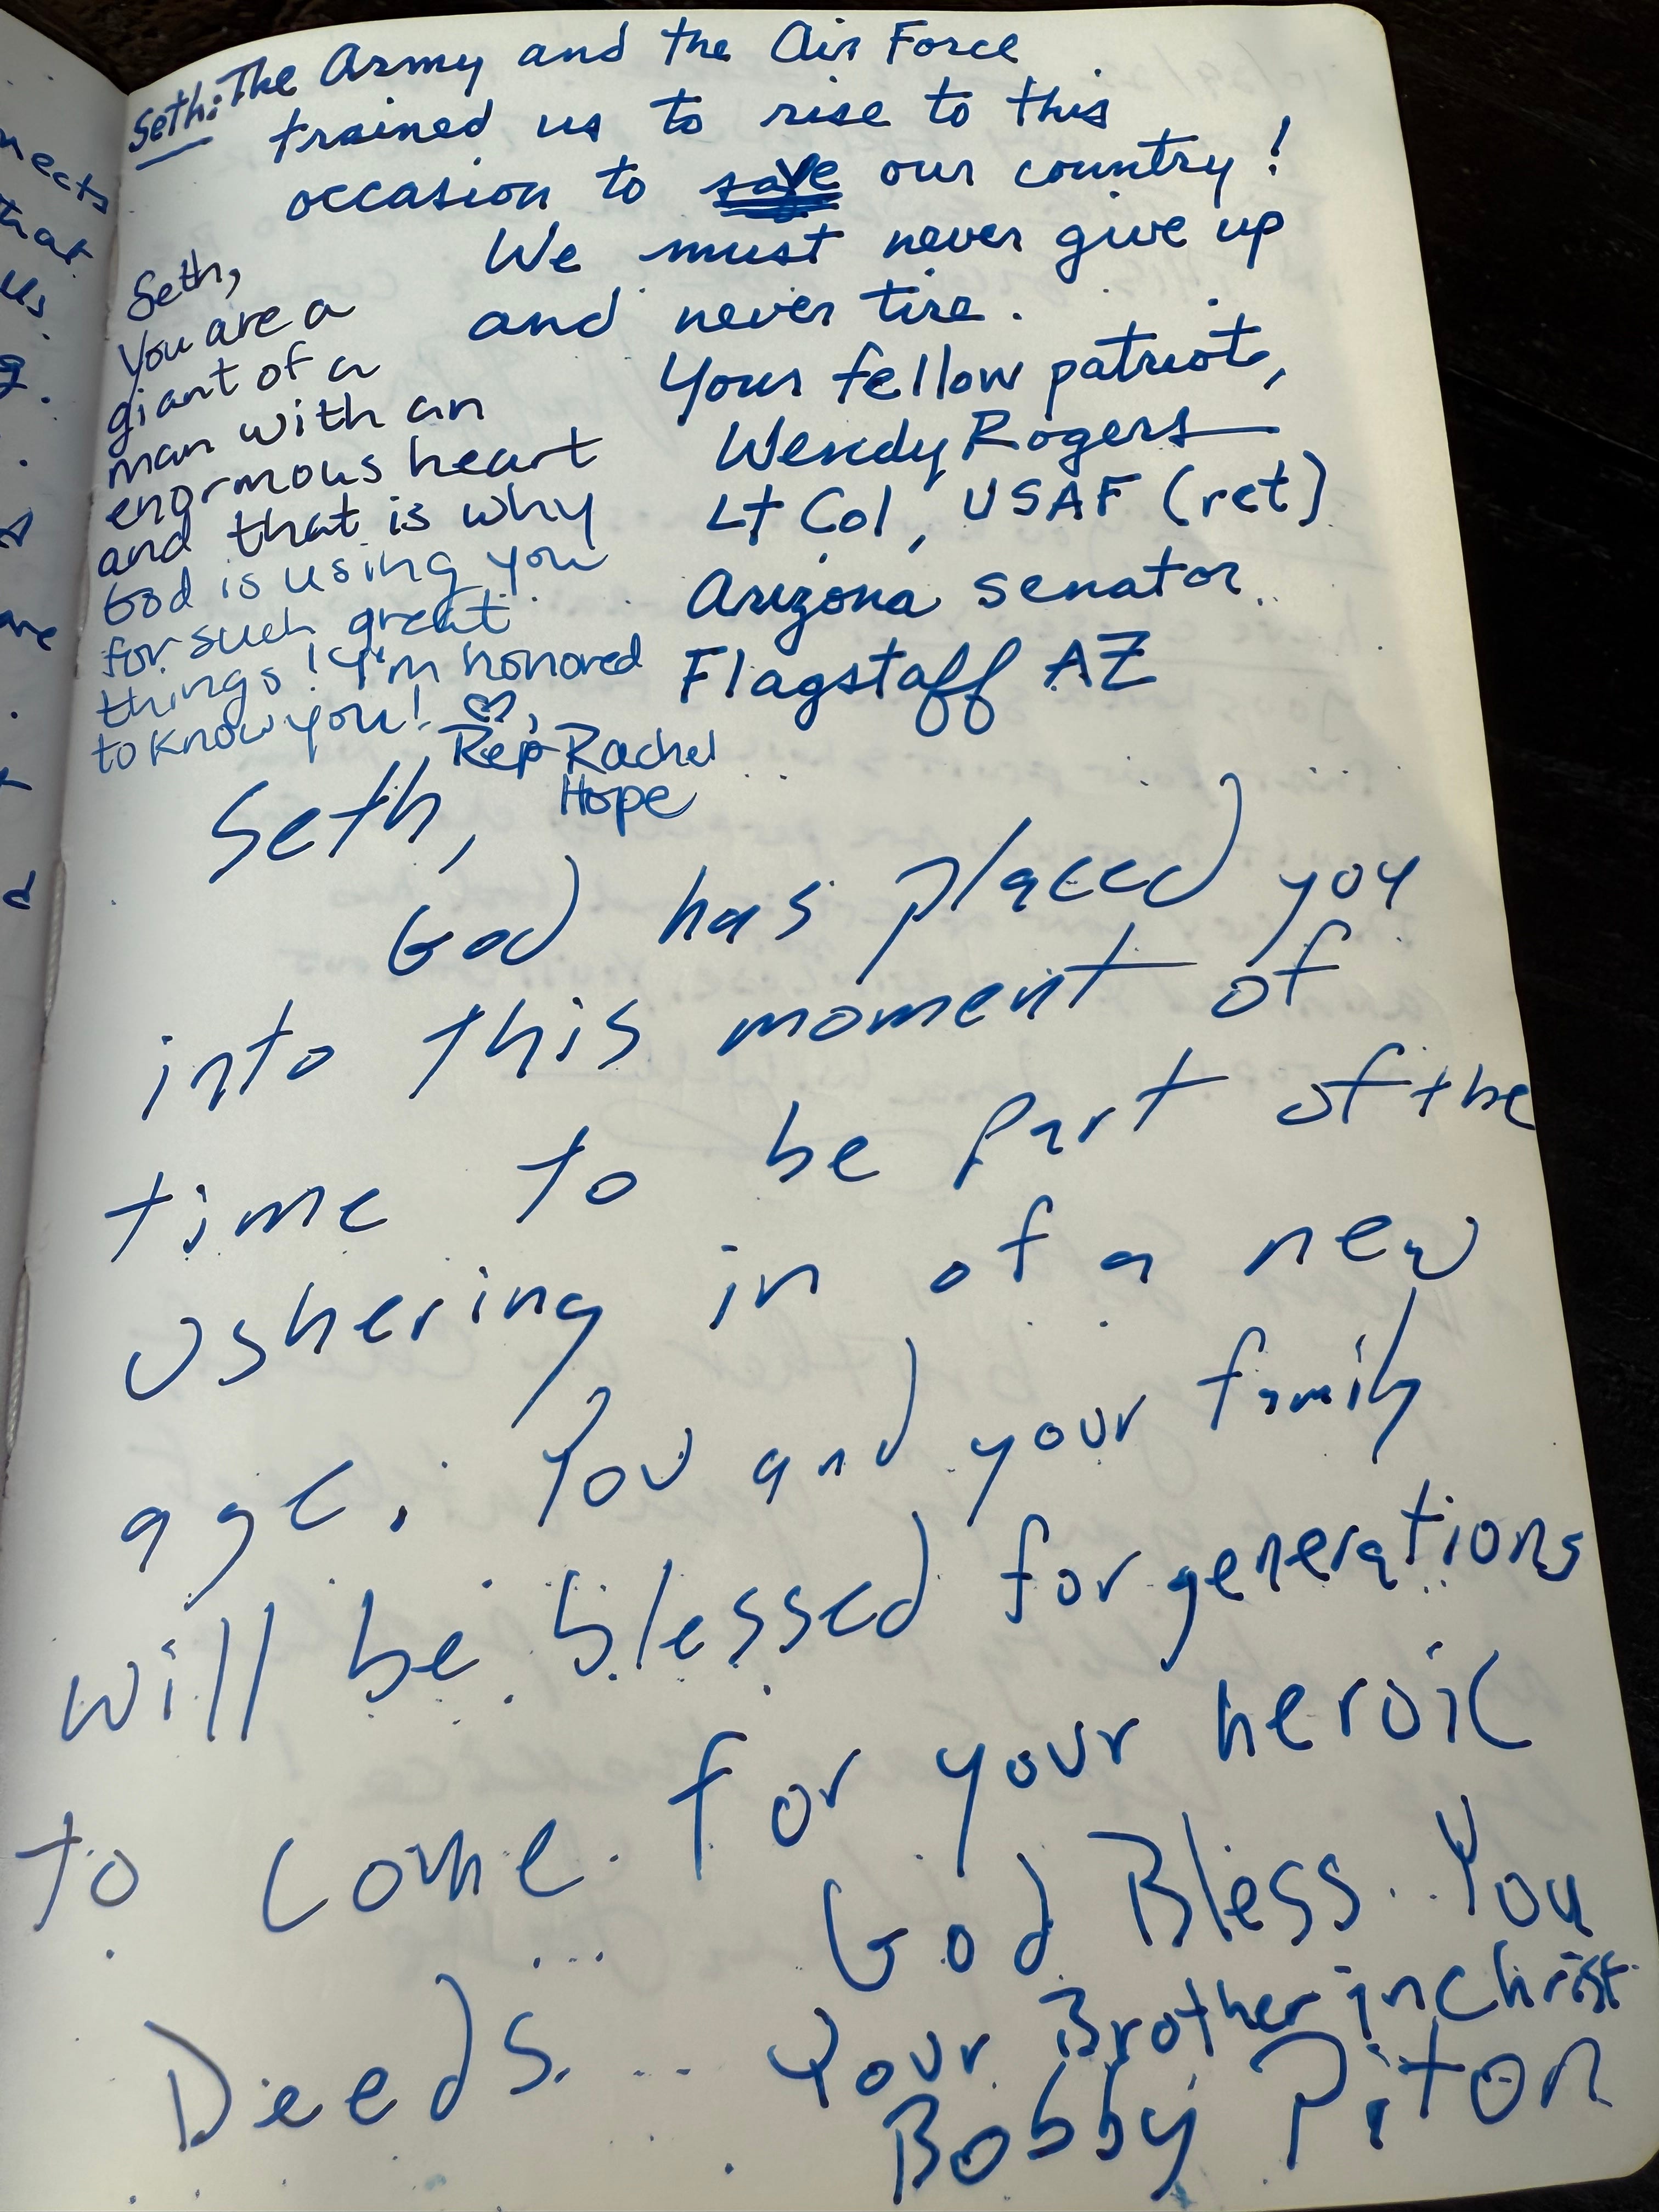 Seth: The Army and the Air Force
trained us to rise to this
occasion to save our country!
We must never give up
and never tire.
Your fellow patriot,
Wendy Rogers
Lt Col, USAF (ret)
Arizona Senator
Flagstaff AZ
Seth,
You are a
giant of a
man with an
enormous heart
and that is why
God is using you
for such great
things! I'm honored
to know you! ♡,
Rep Rachel
Hope
Seth,
God has placed you
into this moment of
time to be part of the
ushering in of a new
age. You and your family
will be blessed for generations
to come for your heroic
Deeds...
God Bless You
Your Brother in Christ
Bobby Piton
nects
that
us
g.
are
d